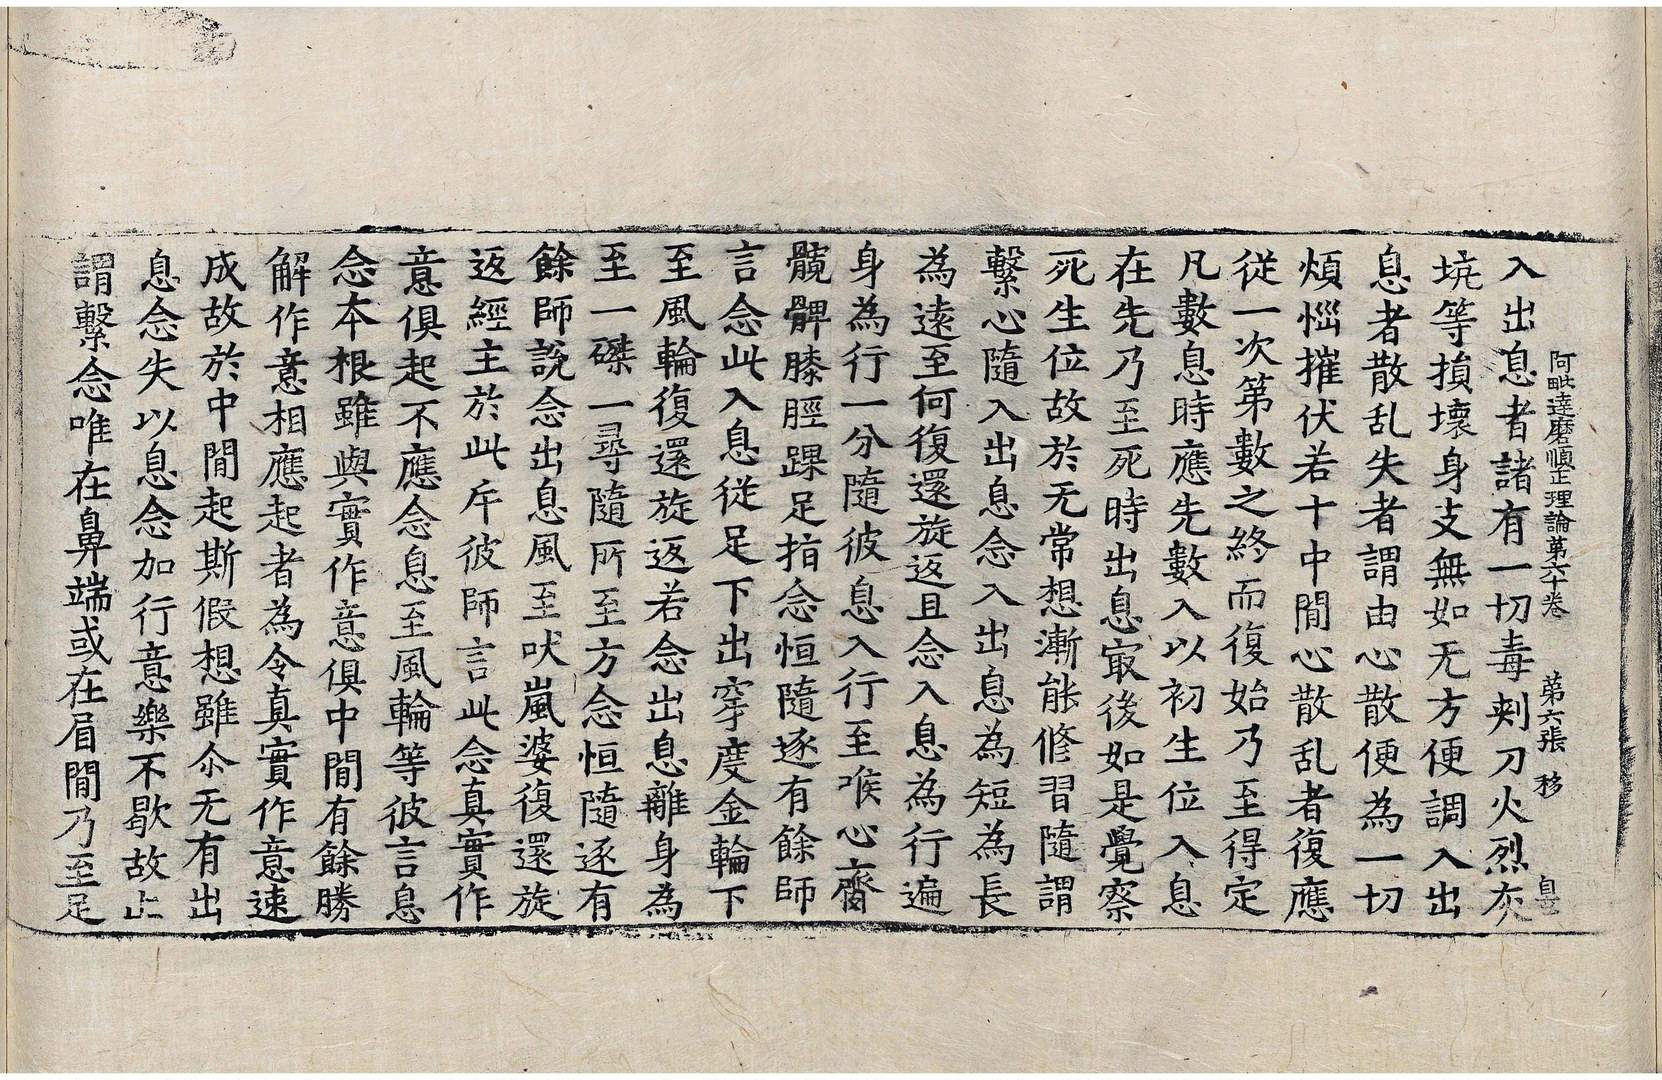 阿毗達磨順正理論第六十卷 第六張 移
入出息者諸有一切毒刺刀火烈灰
坑等損壞身支無如无方便調入出
息者散乱失者謂由心散便為一切
煩惱摧伏若十中閒心散乱者復應
從一次第數之終而復始乃至得定
凡數息時應先數入以初生位入息
在先乃至死時出息㝡後如是覺察
死生位故於无常想漸能修習隨謂
繫心隨入出息念入出息為短為長
為遠至何復還旋返且念入息為行遍
身為行一分隨彼息入行至喉心齎
髖髀膝脛踝足指念恒隨逐有餘師
言念此入息從足下出穿度金輪下
至風輪復還旋返若念出息離身為
至一磔一尋隨所至方念恒隨逐有
餘師說念出息風至吠嵐婆復還旋
返經主於此斥彼師言此念真實作
意俱起不應念息至風輪等彼言息
念本根雖與實作意俱中閒有餘勝
解作意相應起者為令真實作意速
成故於中閒起斯假想雖尒无有出
息念失以息念加行意樂不歇故止
謂繫念唯在鼻端或在眉閒乃至足